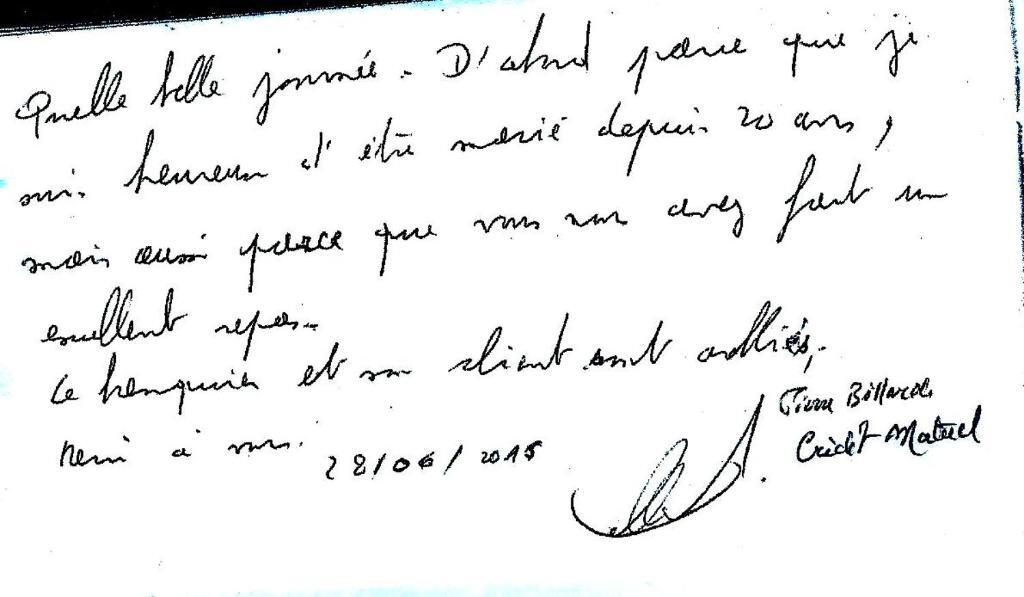 Quelle belle journée. D'abord parce que je
suis heureux d'être marié depuis 20 ans,
mais aussi parce que vous nous avez fait un
excellent repas.
Le banquier et son client sont
Merci à vous.
28/06/2015
Pierre Billard
Crédit Mutuel